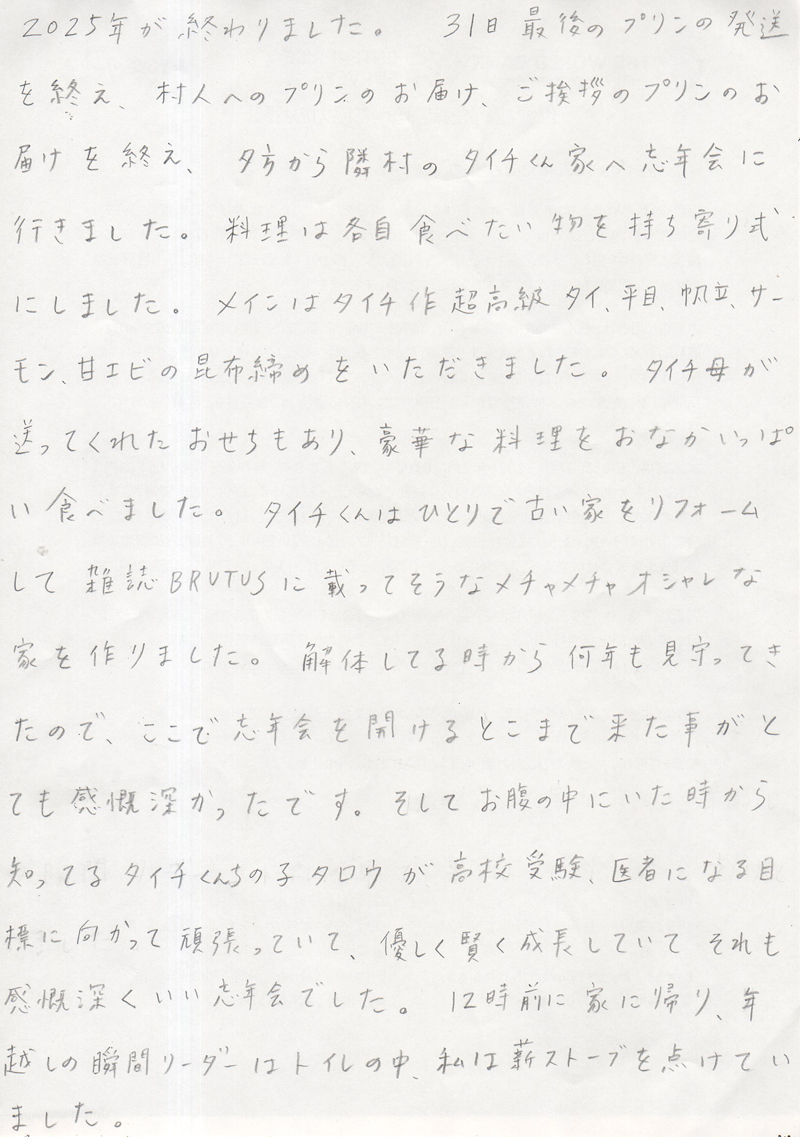 2025年が終わりました。 31日最後のプリンの発送
を終え、村人へのプリンのお届け、ご挨拶のプリンのお
届けを終え、夕方から隣村のタイチくん家へ忘年会に
行きました。料理は各自食べたい物を持ち寄り式
にしました。メインはタイチ作超高級タイ、平目、帆立、サー
モン、甘エビの昆布締めをいただきました。タイチ母が
送ってくれたおせちもあり、豪華な料理をおなかいっぱ
い食べました。タイチくんはひとりで古い家をリフォーム
して雑誌BRUTUSに載ってそうなメチャメチャオシャレな
家を作りました。解体してる時から何年も見守ってき
たので、ここで忘年会を開けるとこまで来た事がと
ても感慨深かったです。そしてお腹の中にいた時から
知ってるタイチくんちの子タロウが高校受験、医者になる目
標に向かって頑張っていて、優しく賢く成長していてそれも
感慨深くいい忘年会でした。12時前に家に帰り、年
越しの瞬間リーダーはトイレの中、私は薪ストーブを点けてい
ました。